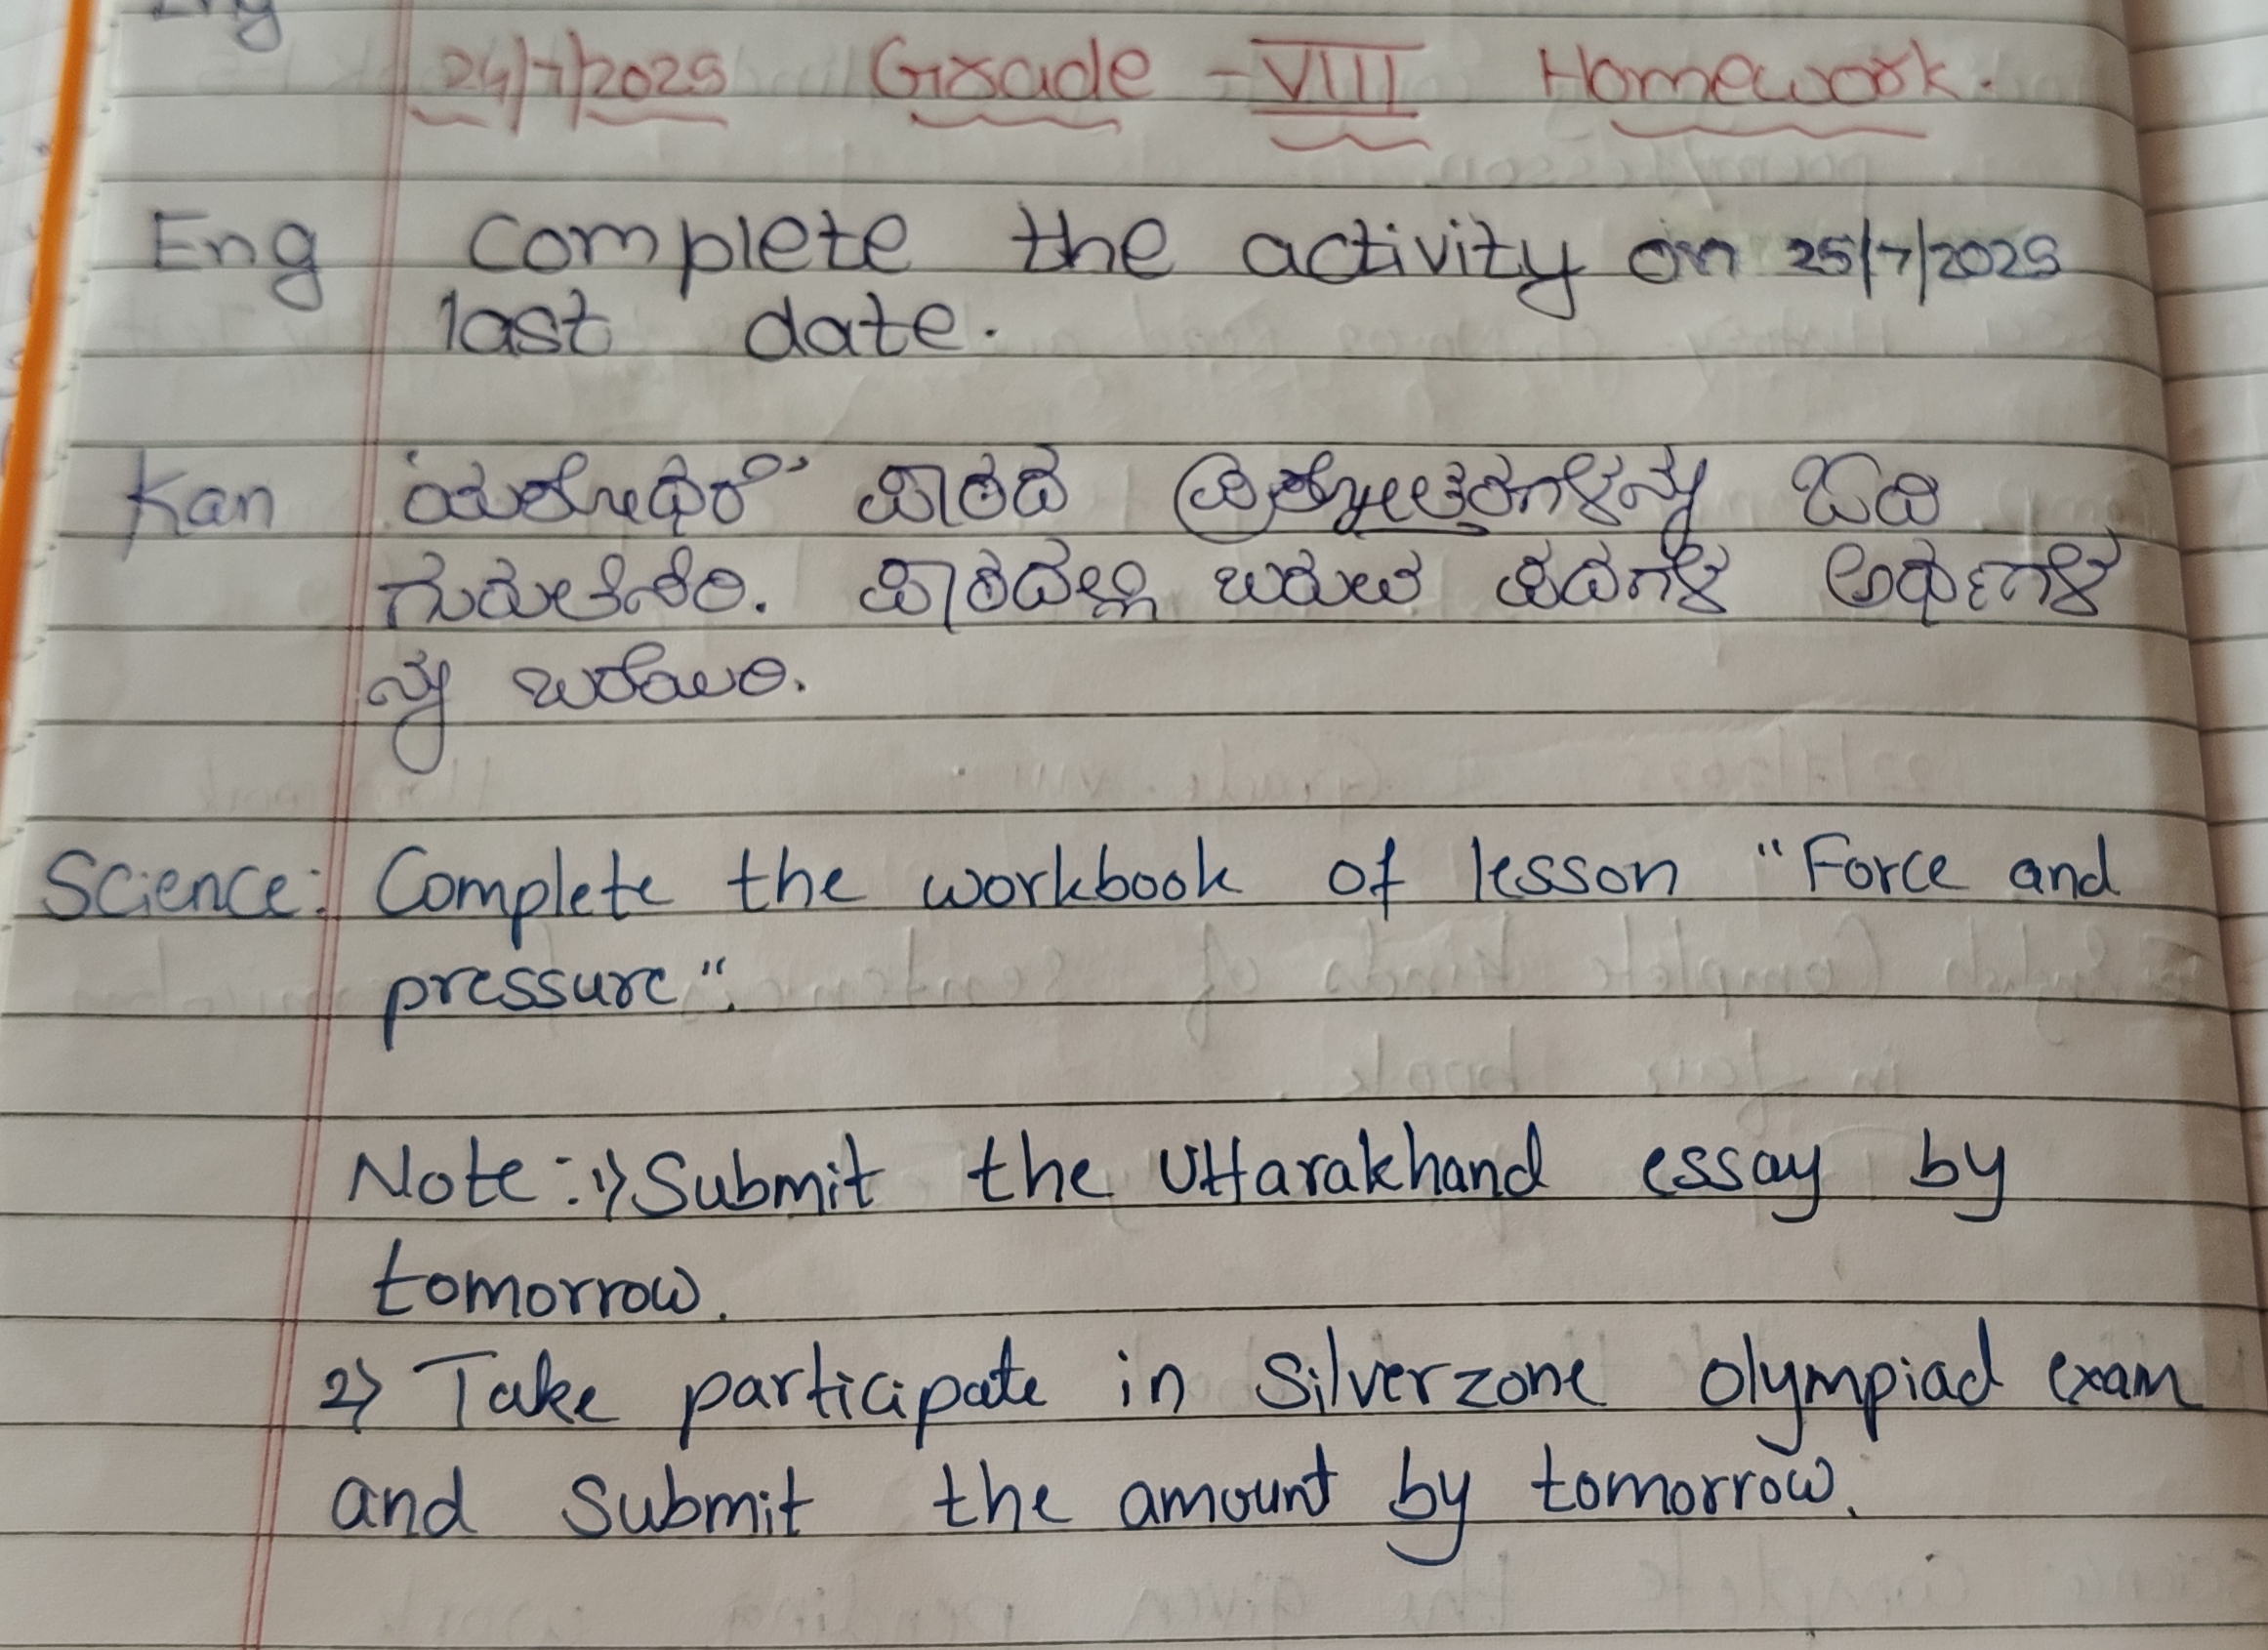 24/7/2025 Grade - VIII Homework.
Eng Complete the activity on 25/7/2025
last date.
Kan 'ಯಶೋಧರೆ' ಪಾಠದ ಪ್ರಶ್ನೋತ್ತರಗಳನ್ನು ಓದಿ
ಗುರುತಿಸಿರಿ. ಪಾಠದಲ್ಲಿ ಬರುವ ಪದಗಳ ಅರ್ಥಗಳ
ನ್ನು ಬರೆಯಿರಿ.
Science: Complete the workbook of lesson "Force and
pressure".
Note:- 1) Submit the Uttarakhand essay by
tomorrow.
2) Take participate in Silverzone olympiad exam
and submit the amount by tomorrow.